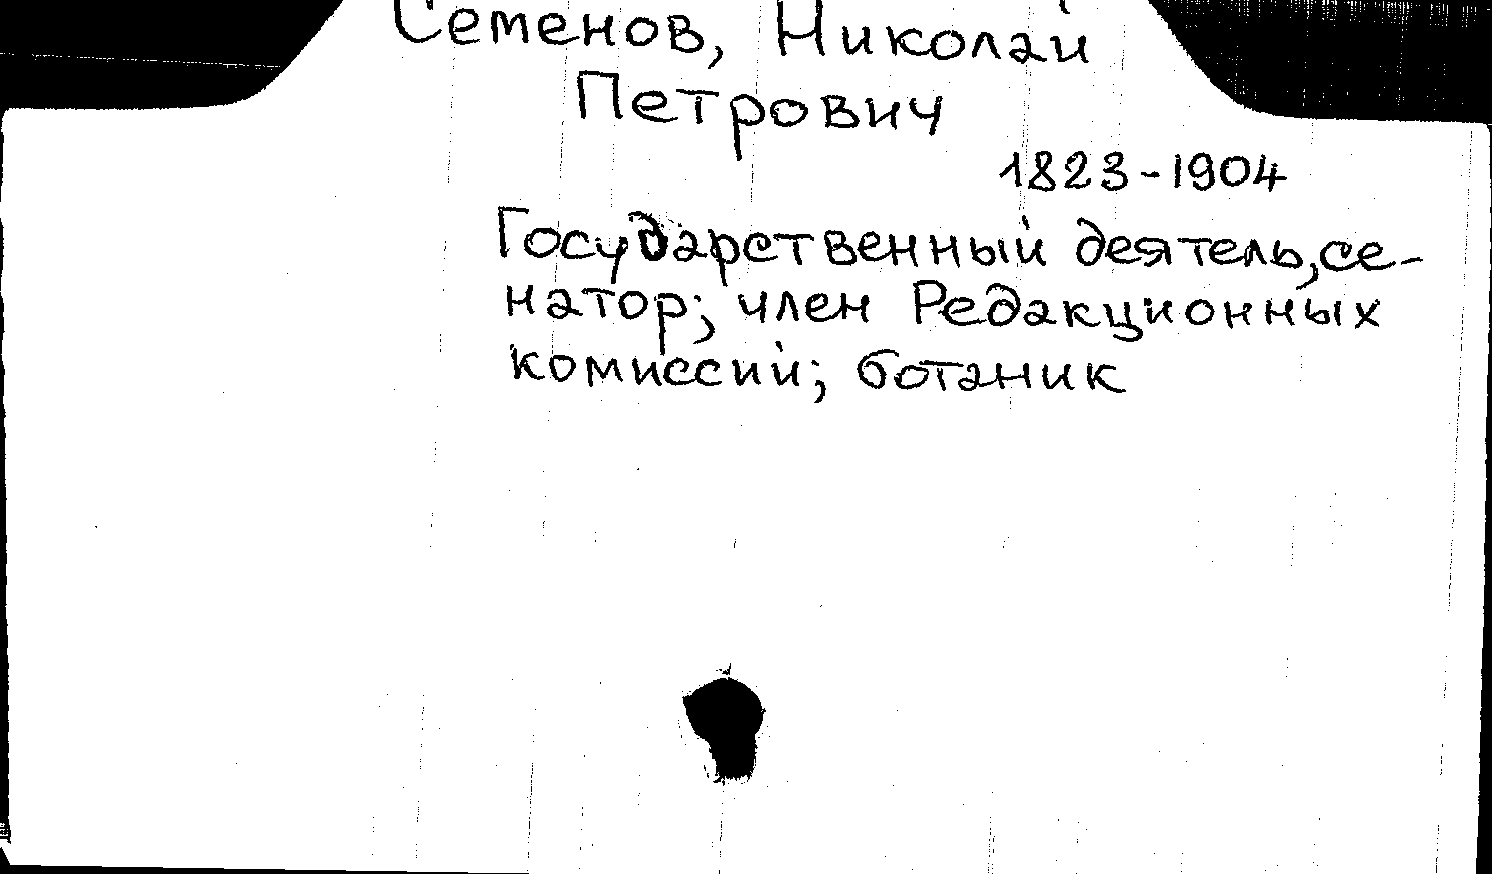 Семенов, Николай
Петрович
1823-1904
Государственный деятель, се-
натор; член Редакционных
комиссий; ботаник